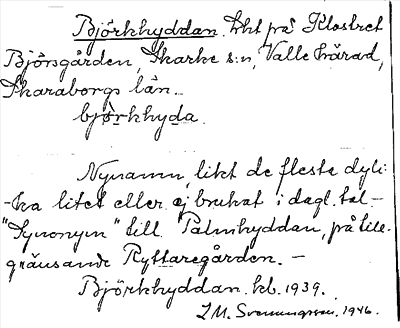 Björkhyddan. Lht på Klostret
Björsgården, Skarke s:n, Valle härad,
Skaraborgs län. –
björkhyda.
Nynamn, likt de flesta dyli-
-ka litet eller ej brukat i dagl. tal –
"Synonym" till Palmhyddan, på till-
gränsande Ryttaregården. –
Björkhyddan. kb. 1939.
I.M. Svenungsson, 1946.